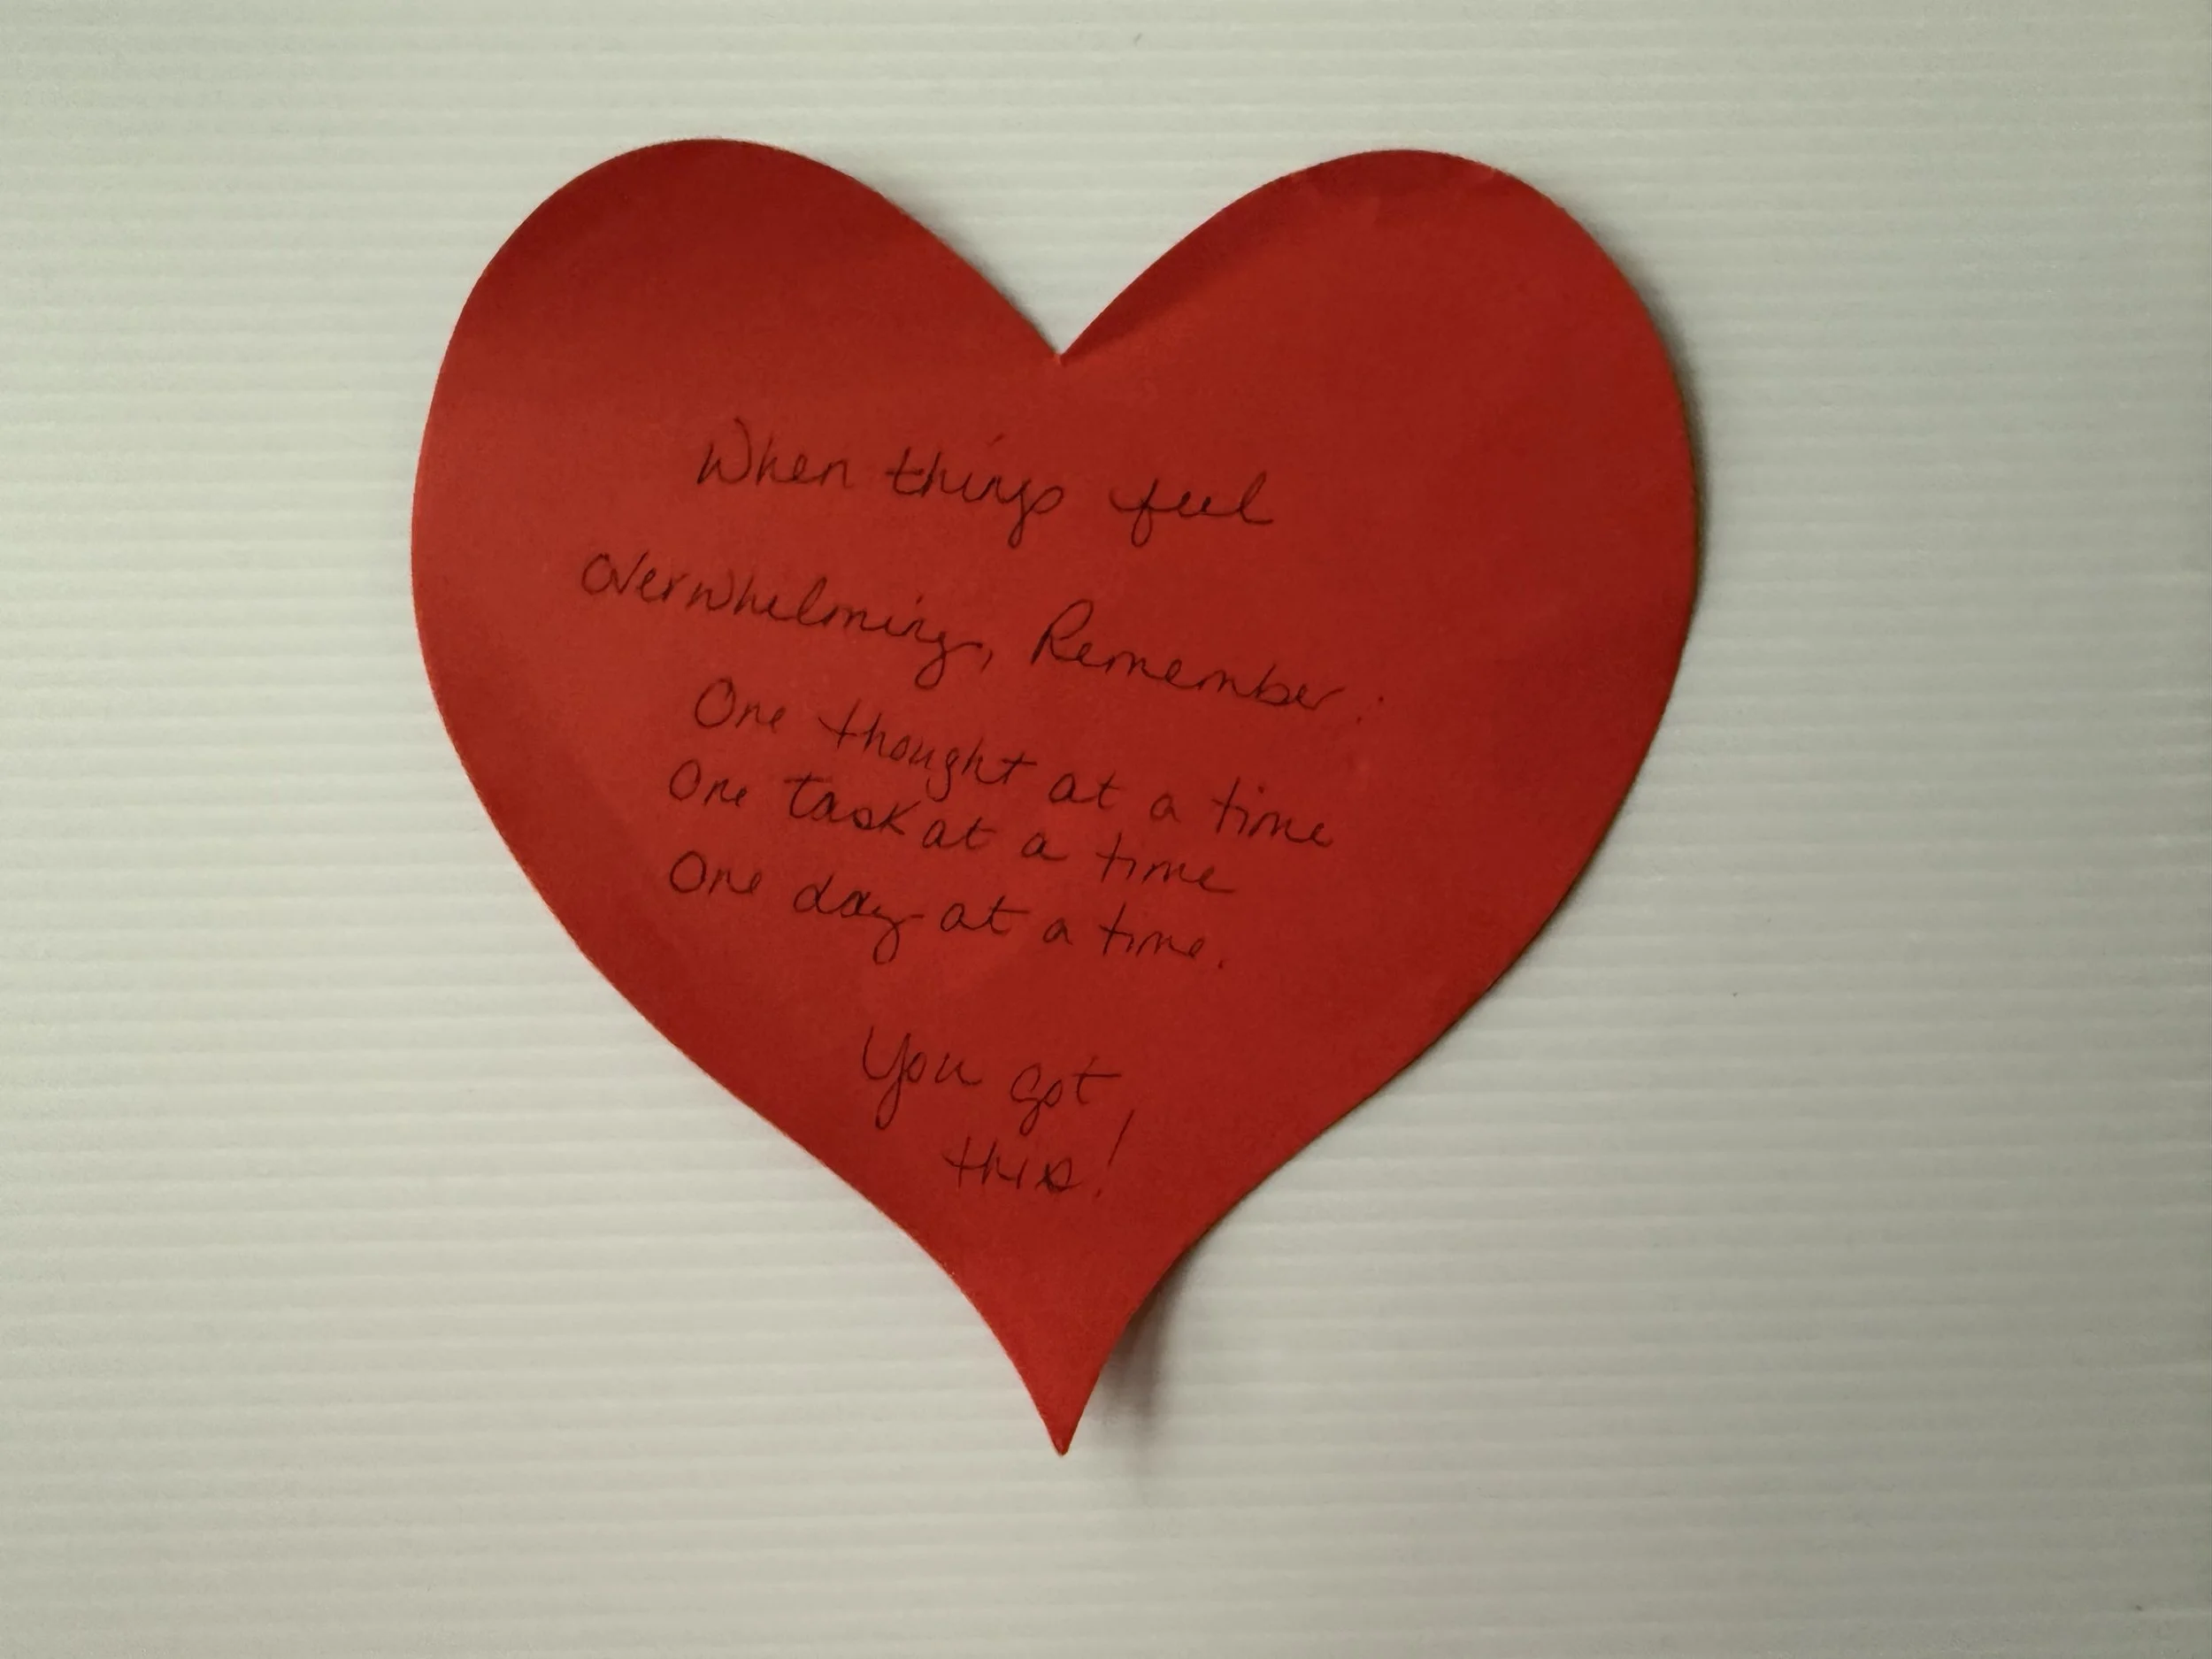 When things feel
overwhelming, Remember:
One thought at a time
One task at a time
One day at a time.
You got
this!